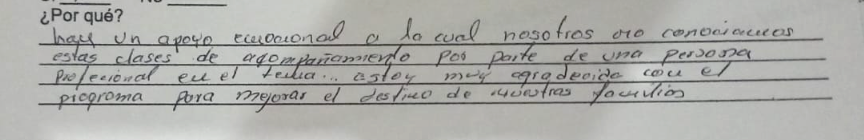 ¿Por qué?
hay un apoyo emocional a lo cual nosotros no conociamos
estas clases de acompañamiento por parte de una persona
profesional en el tema... estoy muy agradecida con el
programa para mejorar el destino de nuestras familias